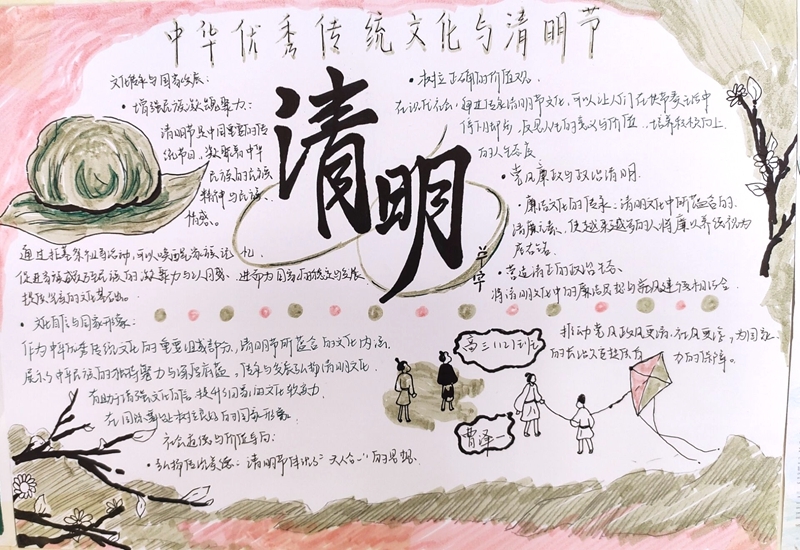 中华优秀传统文化与清明节
清明
文化传承与国家发展：
·增强民族凝聚力：
清明节是中国重要的传
统节日，凝聚着中华
民族的民族
精神与民族
情感。
通过扫墓祭祖等活动，可以唤起家族记忆，
促进家族成员与民族的凝聚力与认同感，进而为国家的稳定与发展
提供坚实的文化基础。
·文化自信与国家形象：
作为中华优秀传统文化的重要组成部分，清明节所蕴含的文化内涵
展示了中华民族的独特魅力与深厚底蕴。传承与发展弘扬清明文化
有助于增强文化自信，提升国家的文化软实力
在国际舞台树立良好的国家形象
社会道德与价值导向：
·弘扬传统美德：清明节体现了“天人合一”的思想
·树立正确的价值观。
在现代社会，通过传承清明节文化，可以让人们在快节奏生活中
停下脚步，反思人生的意义与价值，培养积极向上
的人生态度
·党风廉政与政治清明。
·廉洁文化的传承：清明文化中所蕴含的
清廉元素，使越来越多的人将廉洁养德视为
座右铭
·营造清正的政治生态
将清明文化中的廉洁思想与党风建设相结合
推动党风政风更清，社风更淳，为国家
的长治久安提供有力的保障。
高三1121班
曹泽一